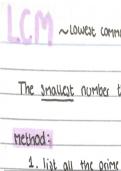 LCM
~Lowest comm
The smallest number t
method:
1. list all the prime